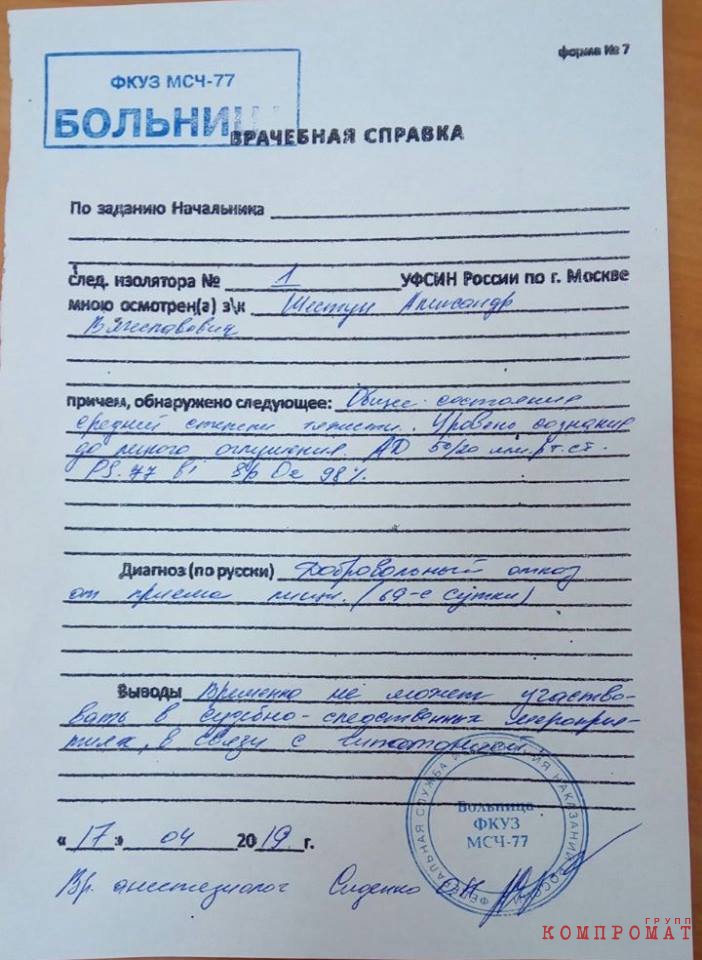 форма № 7
ФКУЗ МСЧ-77
БОЛЬНИЦ
ВРАЧЕБНАЯ СПРАВКА
По заданию Начальника
след. изолятора № 1 УФСИН России по г. Москве
мною осмотрен(а) з\к Шестун Александр
Вячеславович
причем, обнаружено следующее: Общее состояние
средней степени тяжести. Уровень сознания
до легкого оглушения. АД 50/20 мм.рт.ст.
PS. 77 в 1 Sp O2 98%.
Диагноз (по русски) Добровольный отказ
от приема пищи. (69-е сутки)
Выводы Временно не может участво-
вать в судебно-следственных мероприя-
тиях, в связи с гипотонией.
Больница
ФКУЗ
МСЧ-77
«17» 04 2019 г.
Вр. анестезиолог Сиденко
ГРУПП
КОМПРОМАТ